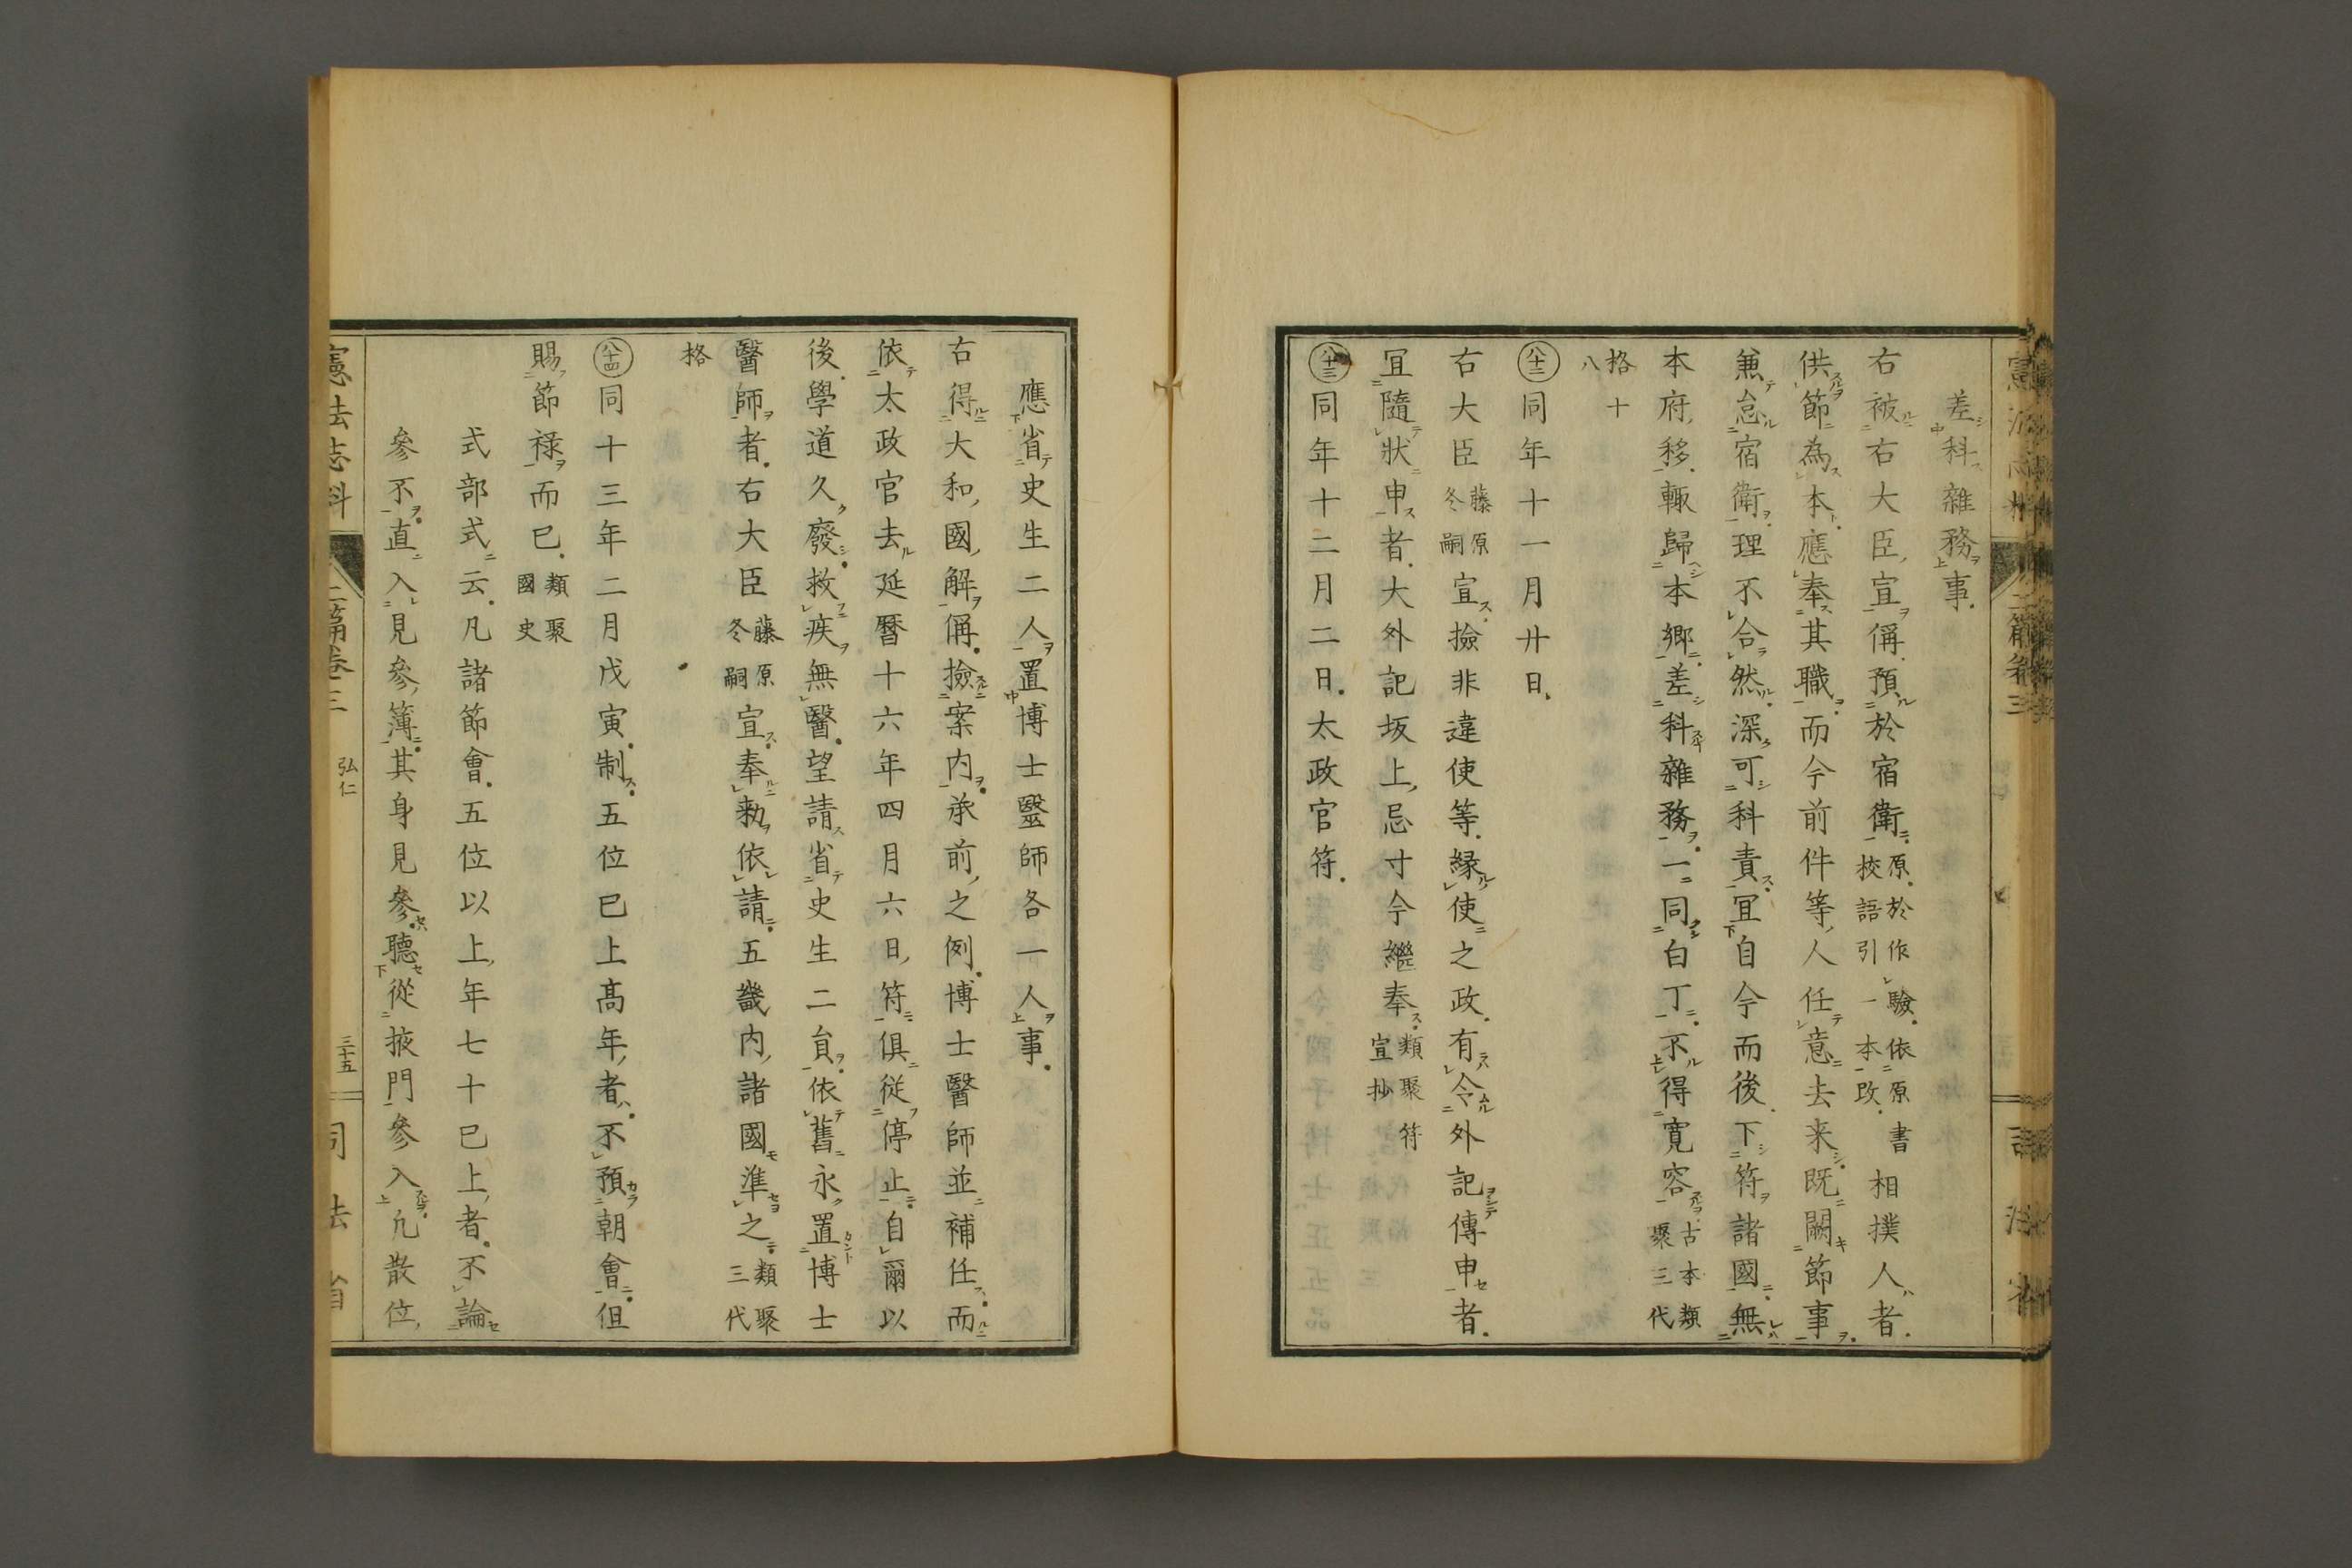 差科雜務事
右被右大臣宣偁預於宿衛原於作驗依原書校語引一本改相撲人者
供節為本應奉其職而今前件等人任意去来既闕節事
兼怠宿衛理不合然深可科責冝自今而後下符諸國無
本府移輙歸本郷差科雜務一同白丁不得寛容古本類聚三代
格十八
八十二同年十一月廿日
右大臣藤原冬嗣宣撿非違使等縁使之政有令外記傳申者
冝隨狀申者大外記坂上忌寸今繼奉類聚符宣抄
八十三同年十二月二日太政官符
應省史生二人置博士毉師各一人事
右得大和國解偁撿案内承前之例博士醫師並補任而
依太政官去延暦十六年四月六日符俱從停止自爾以
後學道久廢救疾無醫望請省史生二貟依舊永置博士
醫師者右大臣藤原冬嗣宣奉勅依請五畿内諸國準之類聚三代
格
八十四同十三年二月戊寅制五位已上髙年者不預朝會但
賜節禄而已類聚國史
式部式云凡諸節會五位以上年七十已上者不論
參不直入見參簿其身見參聽從掖門參入凢散位
憲法志料 二篇卷三 弘仁 三十五 司法省